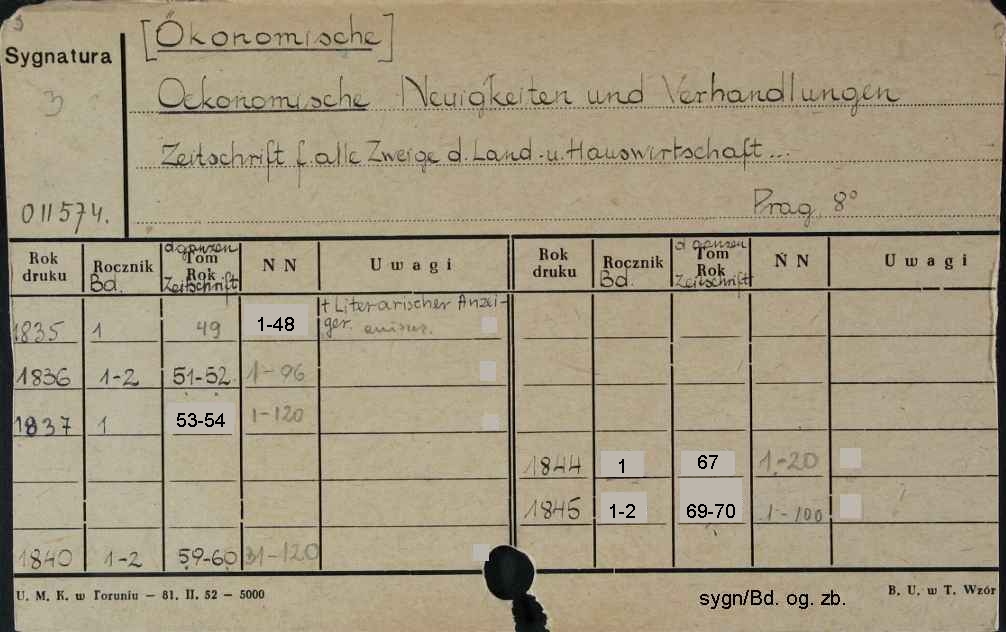 3
[Ökonomische]
Sygnatura
3
Oekonomische Neuigkeiten und Verhandlungen
Zeitschrift f. alle Zweige d. Land- u. Hauswirtschaft...
011574.
Prag, 8°
Rok druku Rocznik Bd. d ganzen Tom Rok Zeitschrift N N Uwagi Rok druku Rocznik Bd. d ganzen Tom Rok Zeitschrift N N Uwagi
1835 1 49 1-48 + Literarischer Anzei-
ger.
1836 1-2 51-52 1-96
1837 1 53-54 1-120
1844 1 67 1-20
1845 1-2 69-70 1-100
1840 1-2 59-60 31-120
U. M. K. w Toruniu — 81. II. 52 — 5000
sygn/Bd. og. zb.
B. U. w T. Wzór